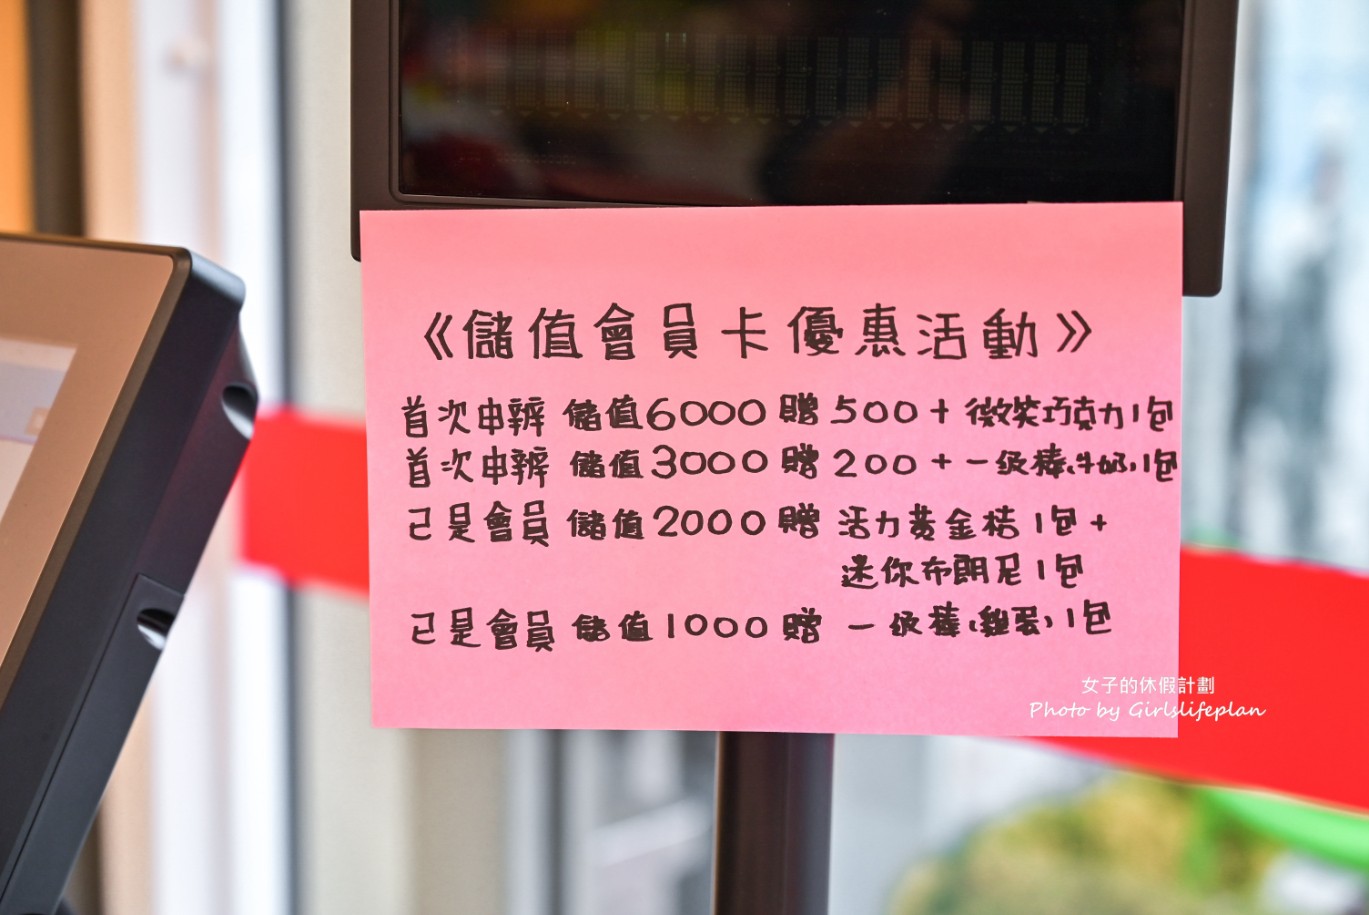 《儲值會員卡優惠活動》
首次申辦 儲值6000 贈 500 + 微笑巧克力1包
首次申辦 儲值3000 贈 200 + 一級棒(牛奶)1包
已是會員 儲值2000 贈 活力黃金桔1包 +
迷你布朗尼1包
已是會員 儲值1000 贈 一級棒(雞蛋)1包
女子的休假計劃
Photo by Girlslifeplan